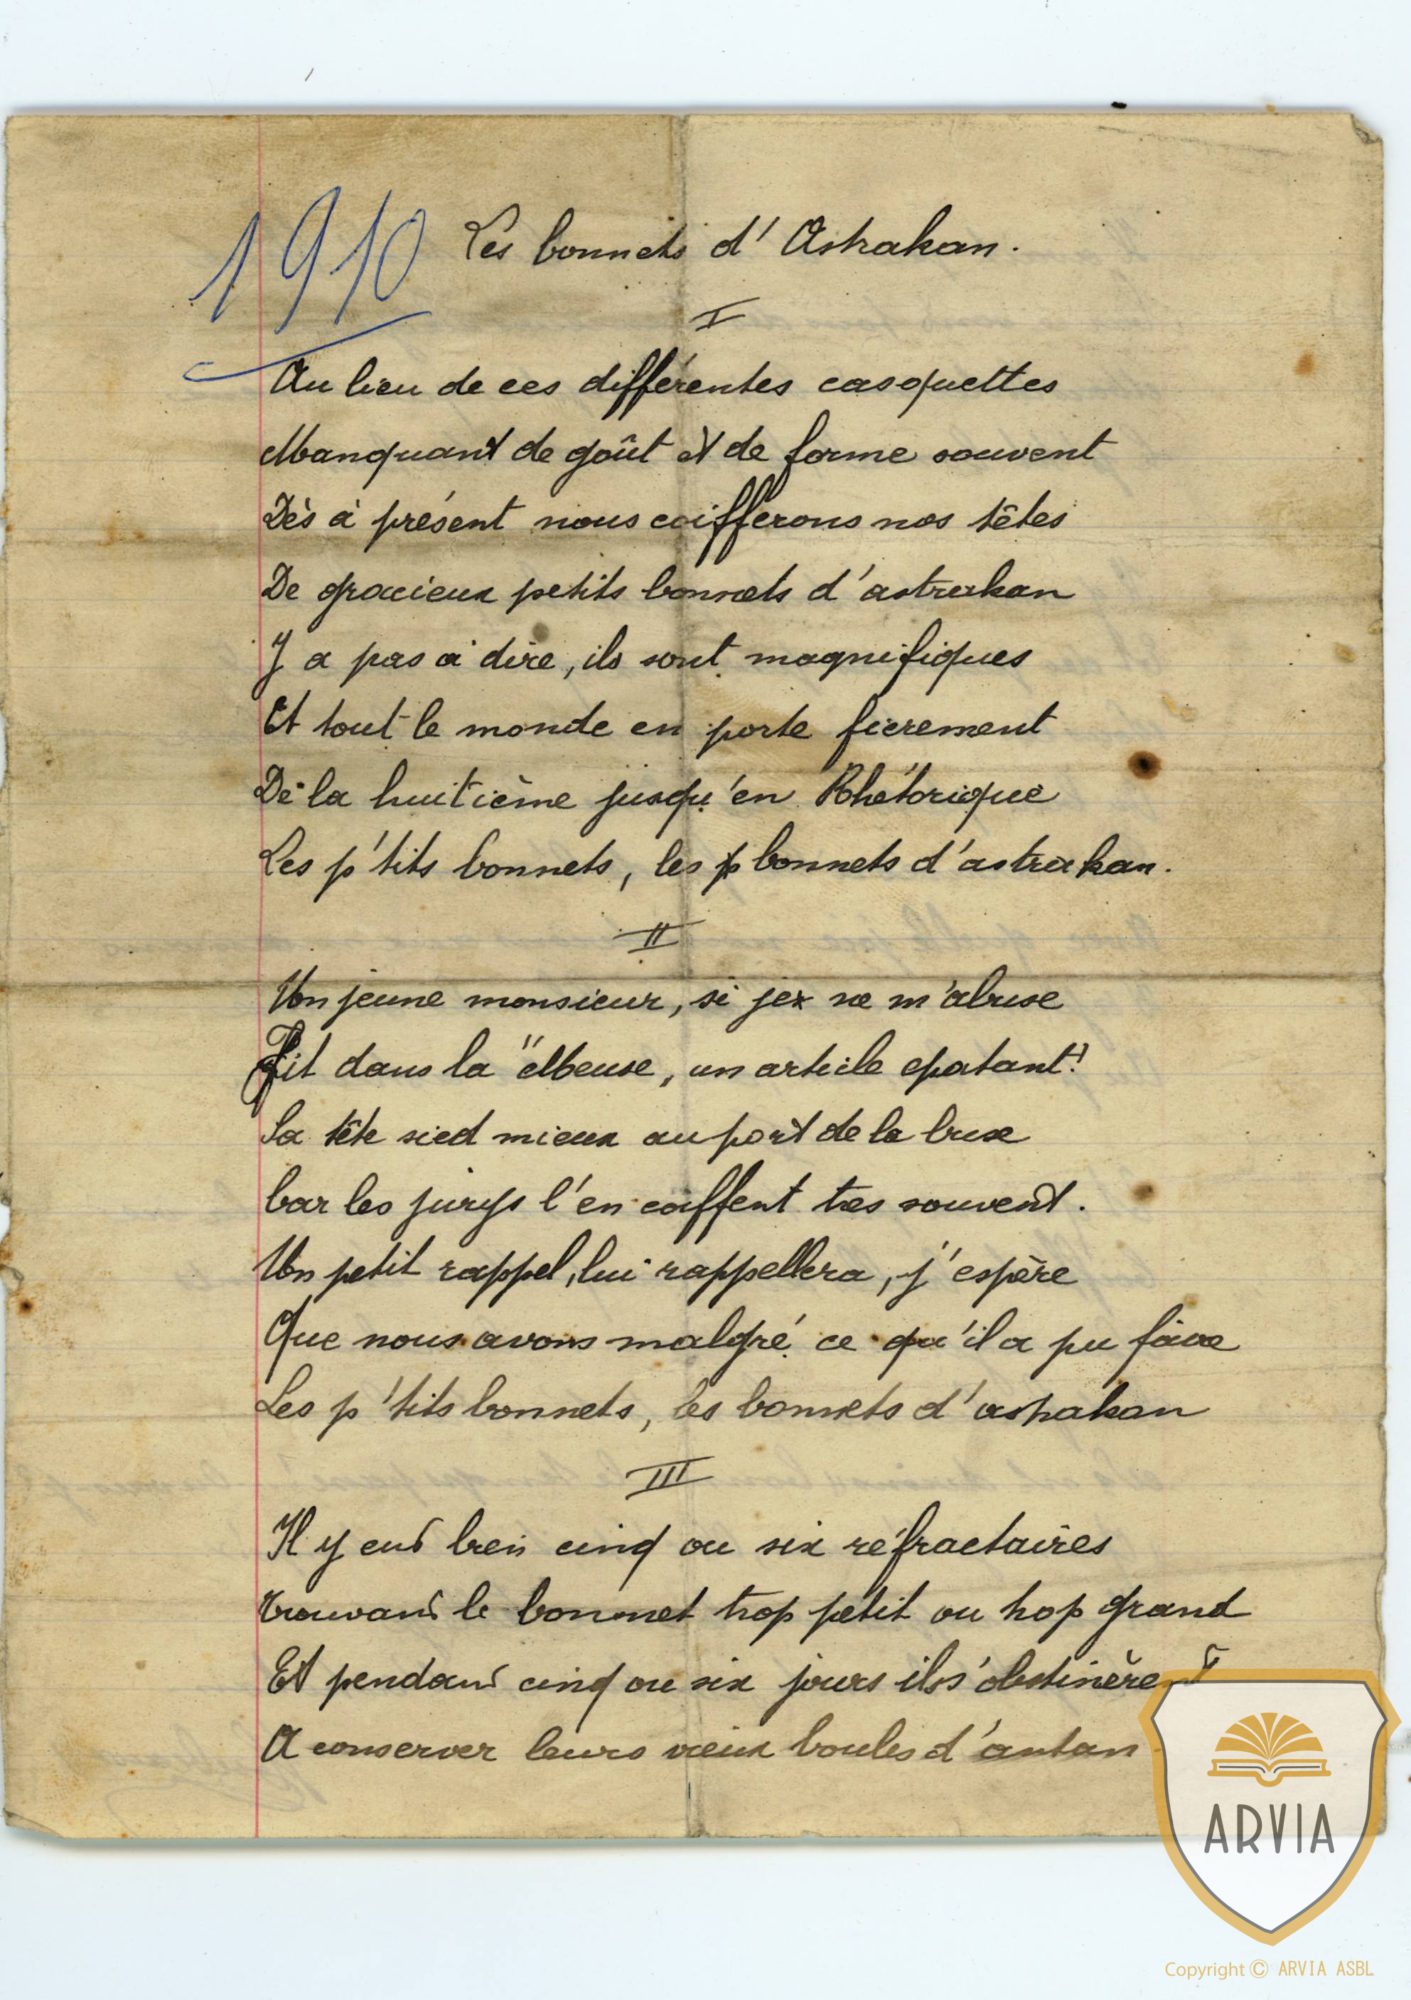 1910
Les bonnets d'Astrakan.
I
Au lieu de ces différentes casquettes
Manquant de goût et de forme souvent
Dès à présent nous coifferons nos têtes
De gracieux petits bonnets d'astrakan
Y a pas à dire, ils sont magnifiques
Et tout le monde en porte fierement
De la huitième jusqu'en Rhétorique
Les p'tits bonnets, les bonnets d'astrakan.
II
Un jeune monsieur, si je ne m'abuse
Fit dans la "elbeuse, un article epatant!
Sa tête sied mieux au port de la buse
Car les jurys l'en coiffent tres souvent.
Un petit rappel, lui rappellera, j'espère
Que nous avons malgré ce qu'il a pu faire
Les p'tits bonnets, les bonnets d'astrakan
III
Il y eut bien cinq ou six réfractaires
Trouvant le bonnet trop petit ou trop grand
Et pendant cinq ou six jours ils s'obstinèrent
A conserver leurs vieux boules d'antan
ARVIA
Copyright © ARVIA ASBL